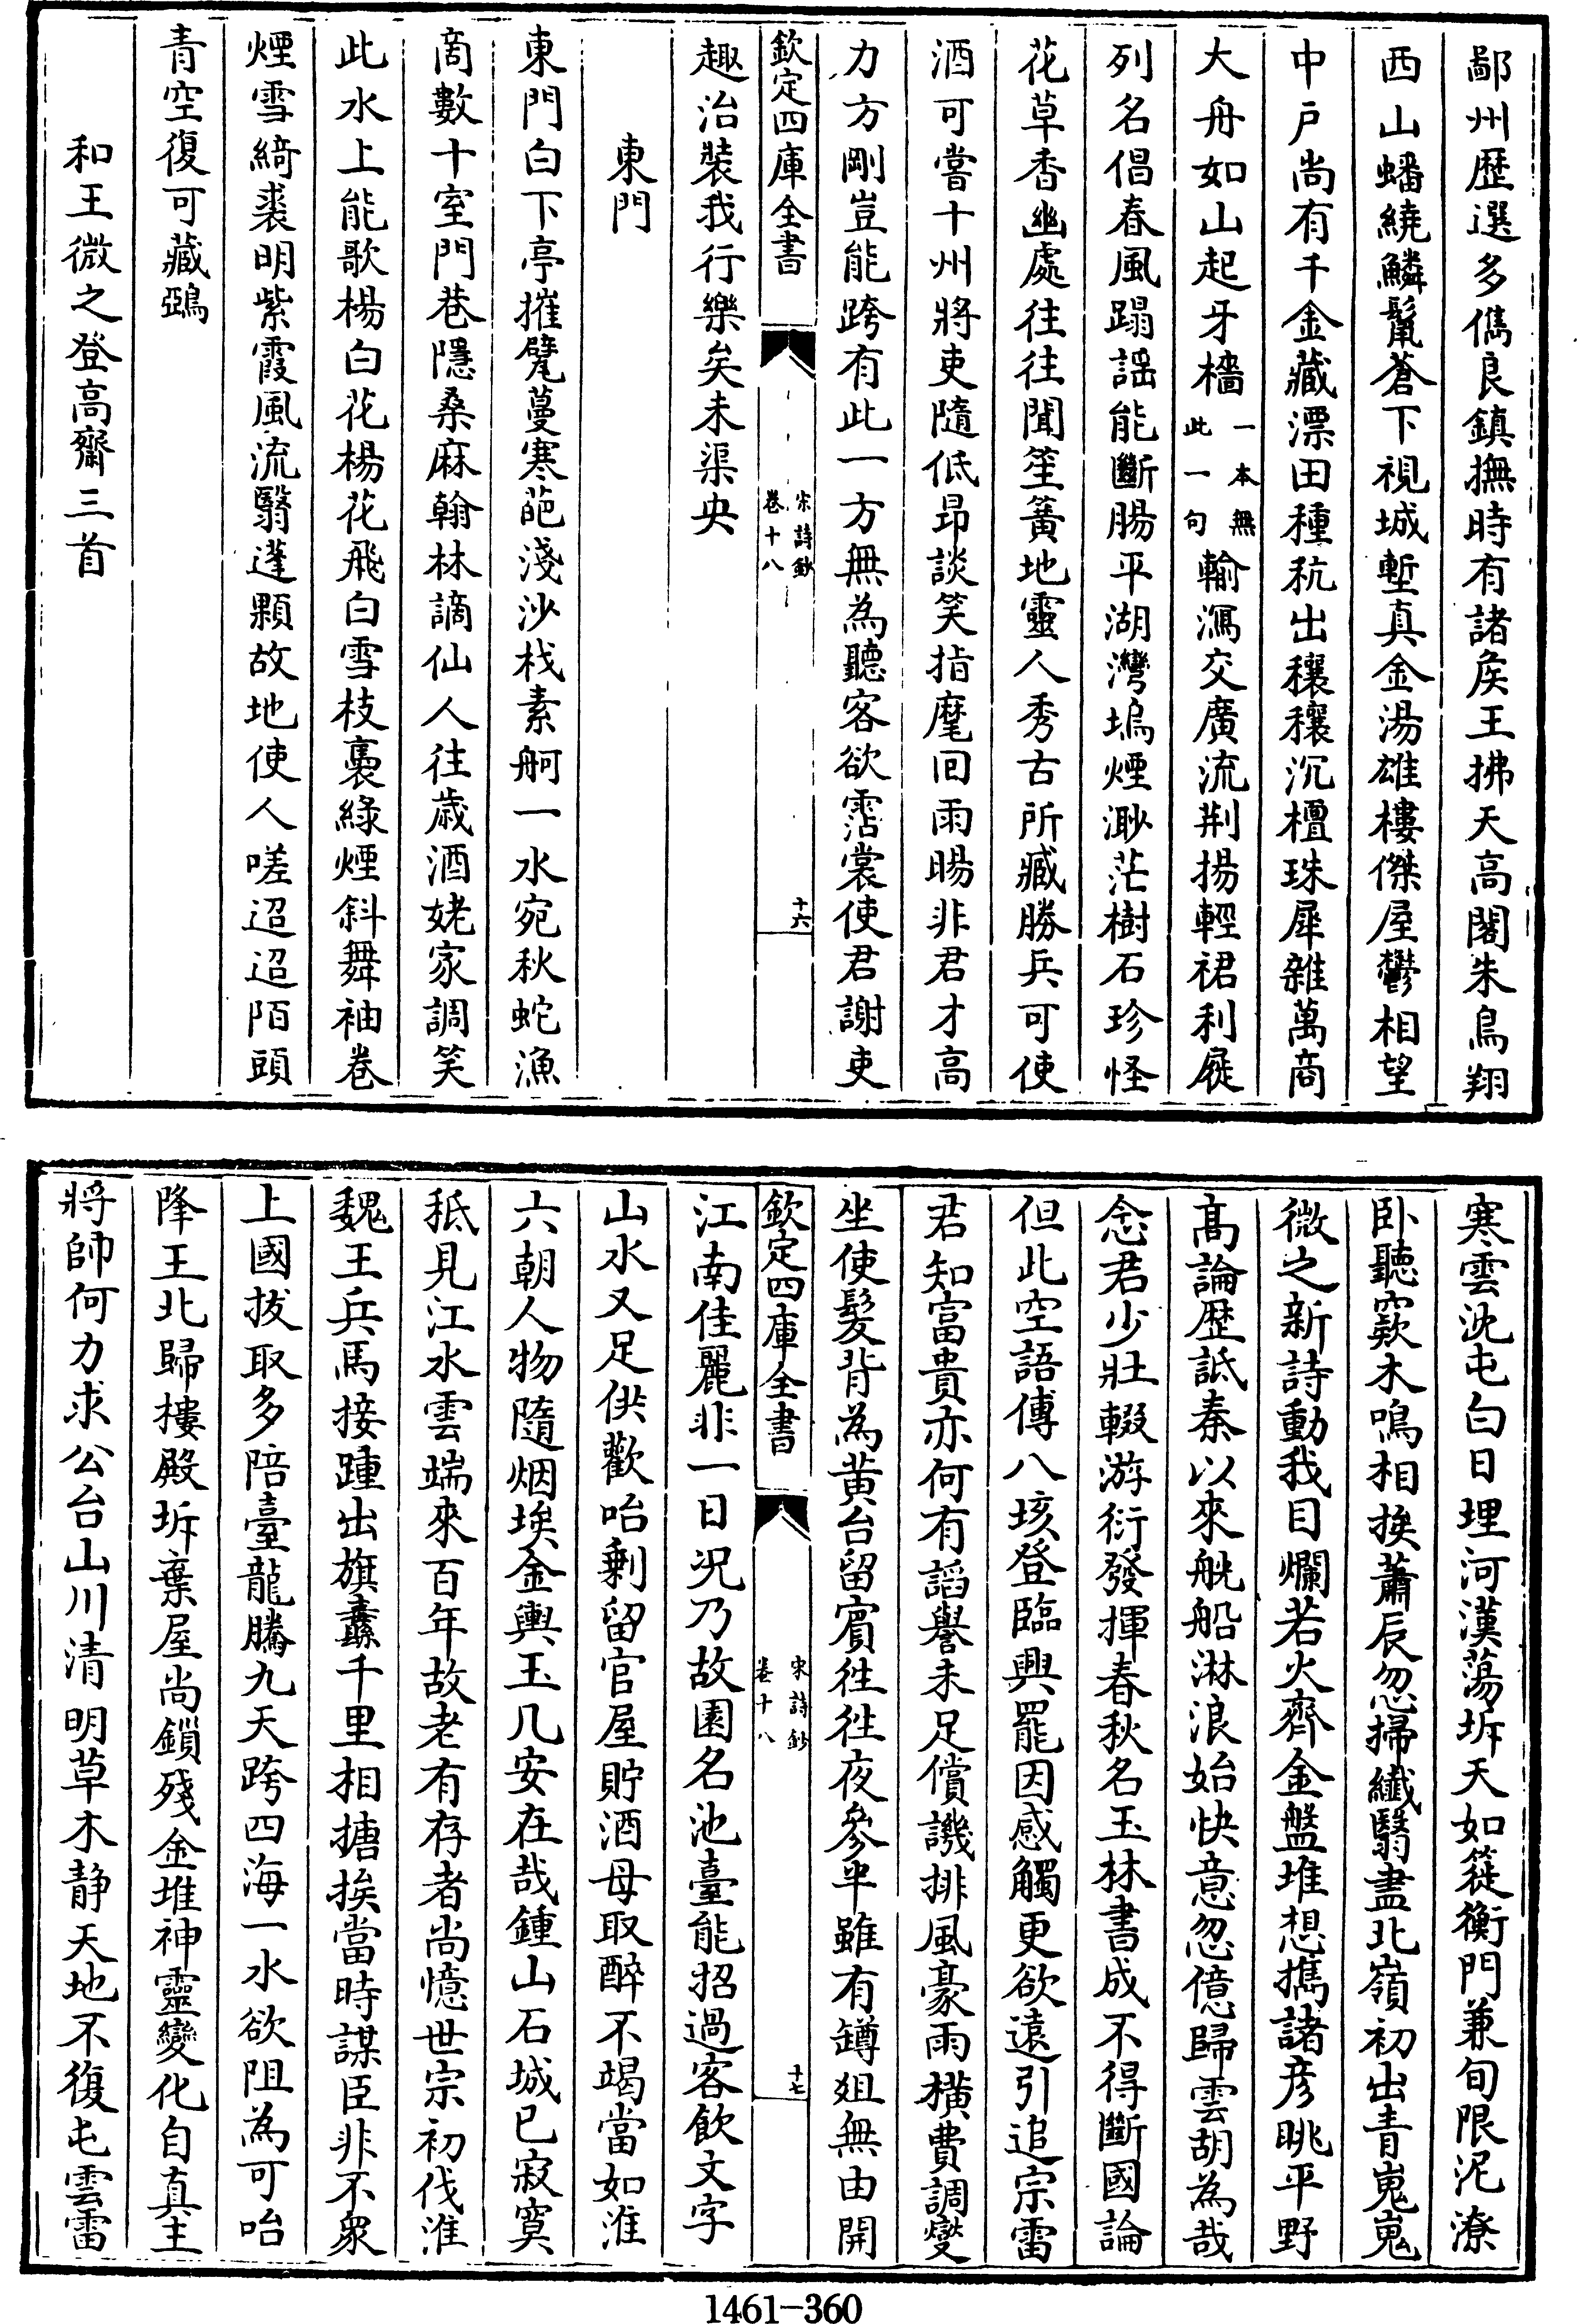 鄱州歴選多儁良鎮撫時有諸矦王拂天高閣朱鳥翔
西山蟠繞鱗鬛蒼下視城塹真金湯雄樓傑屋鬱相望
中戸尚有千金藏漂田種秔出穰穰沉檀珠犀雜萬商
大舟如山起牙檣一本無此一句輸瀉交廣流荆揚輕裙利屣
列名倡春風蹋謡能斷腸平湖灣塢煙渺茫樹石珍怪
花草香幽處往往聞笙簧地靈人秀古所臧勝兵可使
酒可嘗十州將吏隨低昻談笑指麾回雨暘非君才高
力方剛豈能跨有此一方無為聽客欲霑裳使君謝吏
欽定四庫全書
宋詩鈔
卷十八
十六
趣治裝我行樂矣未渠央
東門
東門白下亭摧甓蔓寒葩淺沙杙素舸一水宛秋蛇漁
商數十室門巷隱桑麻翰林謫仙人往歲酒姥家調笑
此水上能歌楊白花楊花飛白雪枝裊綠煙斜舞袖卷
煙雪綺裘明紫霞風流翳蓬顆故地使人嗟迢迢陌頭
青空復可藏鵶
和王微之登高齋三首
寒雲沈屯白日埋河漢蕩坼天如簁衡門兼旬限泥潦
卧聽窾木鳴相挨蕭辰忽掃纖翳盡北嶺初出青嵬嵬
微之新詩動我目爛若火齊金盤堆想攜諸彦眺平野
髙論歴詆秦以來觥船淋浪始快意忽億歸雲胡為哉
念君少壯輟游衍發揮春秋名玉林書成不得斷國論
但此空語傳八垓登臨興罷因感觸更欲遠引追宗雷
君知富貴亦何有謟譽未足償譏排風豪雨横費調燮
坐使髮背為黄台留賓徃徃夜參半雖有罇俎無由開
欽定四庫全書
宋詩鈔
卷十八
十七
江南佳麗非一日况乃故園名池臺能招過客飲文字
山水又足供歡咍剩留官屋貯酒母取醉不竭當如淮
六朝人物隨烟埃金輿玉几安在哉鍾山石城已寂寞
秪見江水雲端來百年故老有存者尚憶世宗初伐淮
魏王兵馬接踵出旗纛千里相搪挨當時謀臣非不衆
上國拔取多陪臺龍騰九天跨四海一水欲阻為可咍
降王北歸樓殿坼棄屋尚鎖殘金堆神靈變化自真主
將帥何力求公台山川清明草木静天地不復屯雲雷
1461-360